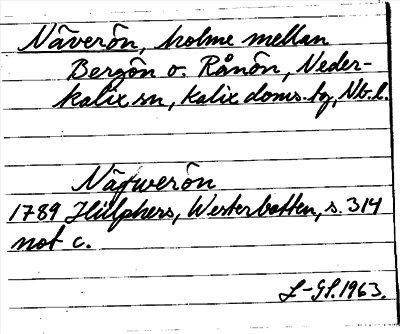 Näverön, holme mellan
Bergön o. Rånön, Neder-
kalix sn, Kalix doms.hg, Nb.l.
Näfwerön
1789 Hülphers, Westerbotten, s. 314
not c.
1963.